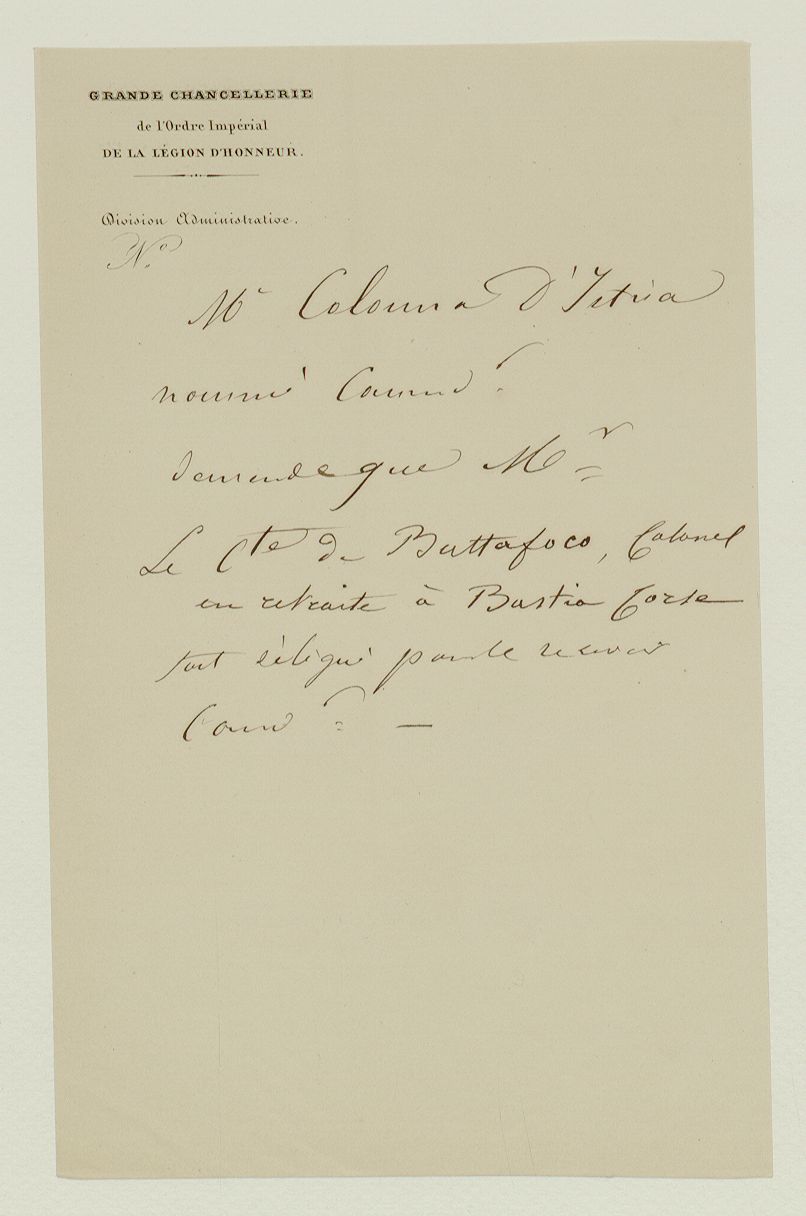 GRANDE CHANCELLERIE
de l'Ordre Impérial
DE LA LÉGION D'HONNEUR.
Division Administrative.
N.°
Mr Colonna D'Istria
nommé Command.r
demande que Mr
Le Cte de Buttafoco, Colonel
en retraite à Bastia Corse
soit délégué pour le recevoir
Comd.r —